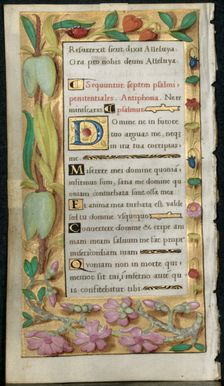 Resurrexit sicut dixit Alleluya.
Ora pro nobis deum Alleluya.
Sequuntur septem psalmi
penitentiales. Antiphona. Ne re
miniscaris psalmus
Domine ne in furore
tuo arguas me, neq
in ira tua corripias
me
Miserere mei domine quoniam
infirmus sum, sana me domine
quoniam conturbata sunt ossa mea
Et anima mea turbata est valde
sed tu domine usquequo
Convertere domine & eripe ani
mam meam salvum me fac propt
misericordiam tuam
Quoniam non in morte qui
memor sit tui, in inferno aute qu
is confitebitur tibi